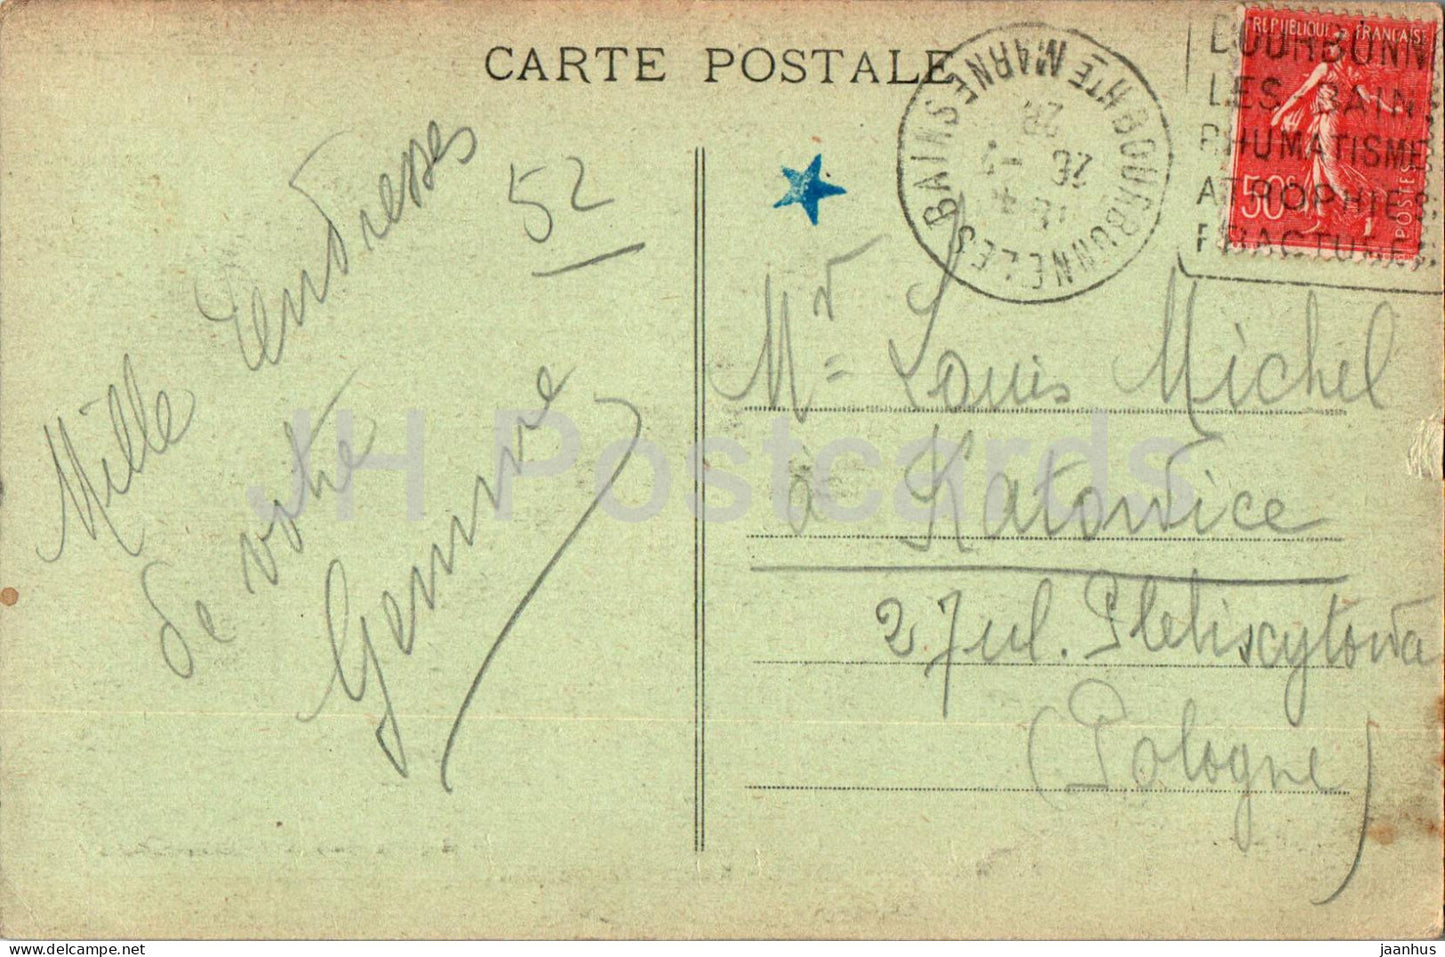 CARTE POSTALE
Mille tendresses
de votre
Germaine
52
BOURBONNE LES BAINS HTE MARNE
BOURBONNE
LES BAINS
RHUMATISME
ATROPHIES
FRACTURES
REPUBLIQUE FRANCAISE
50c
POSTES
Mr Louis Michel
à Katowice
27 ul. Plebiscytowa
(Pologne)
JH Postcards
jaanhus